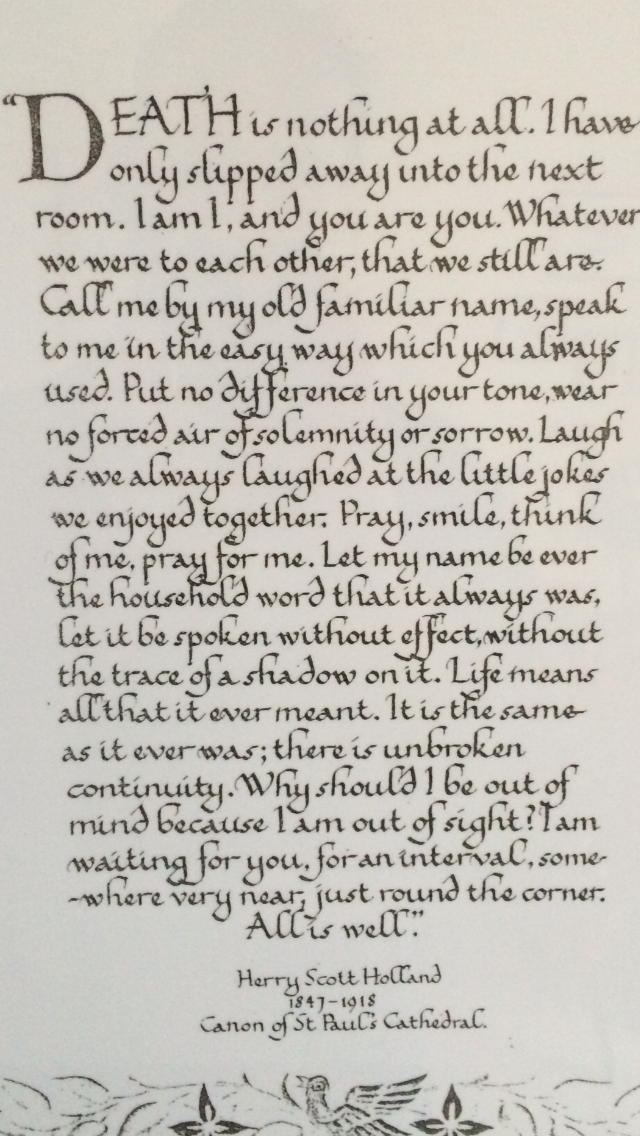 “DEATH is nothing at all. I have
only slipped away into the next
room. I am I, and you are you. Whatever
we were to each other, that we still are.
Call me by my old familiar name, speak
to me in the easy way which you always
used. Put no difference in your tone, wear
no forced air of solemnity or sorrow. Laugh
as we always laughed at the little jokes
we enjoyed together. Pray, smile, think
of me, pray for me. Let my name be ever
the household word that it always was,
let it be spoken without effect, without
the trace of a shadow on it. Life means
all that it ever meant. It is the same
as it ever was; there is unbroken
continuity. Why should I be out of
mind because I am out of sight? I am
waiting for you, for an interval, some-
-where very near, just round the corner.
All is well.”
Herry Scott Holland
1847-1918
Canon of St Paul's Cathedral.